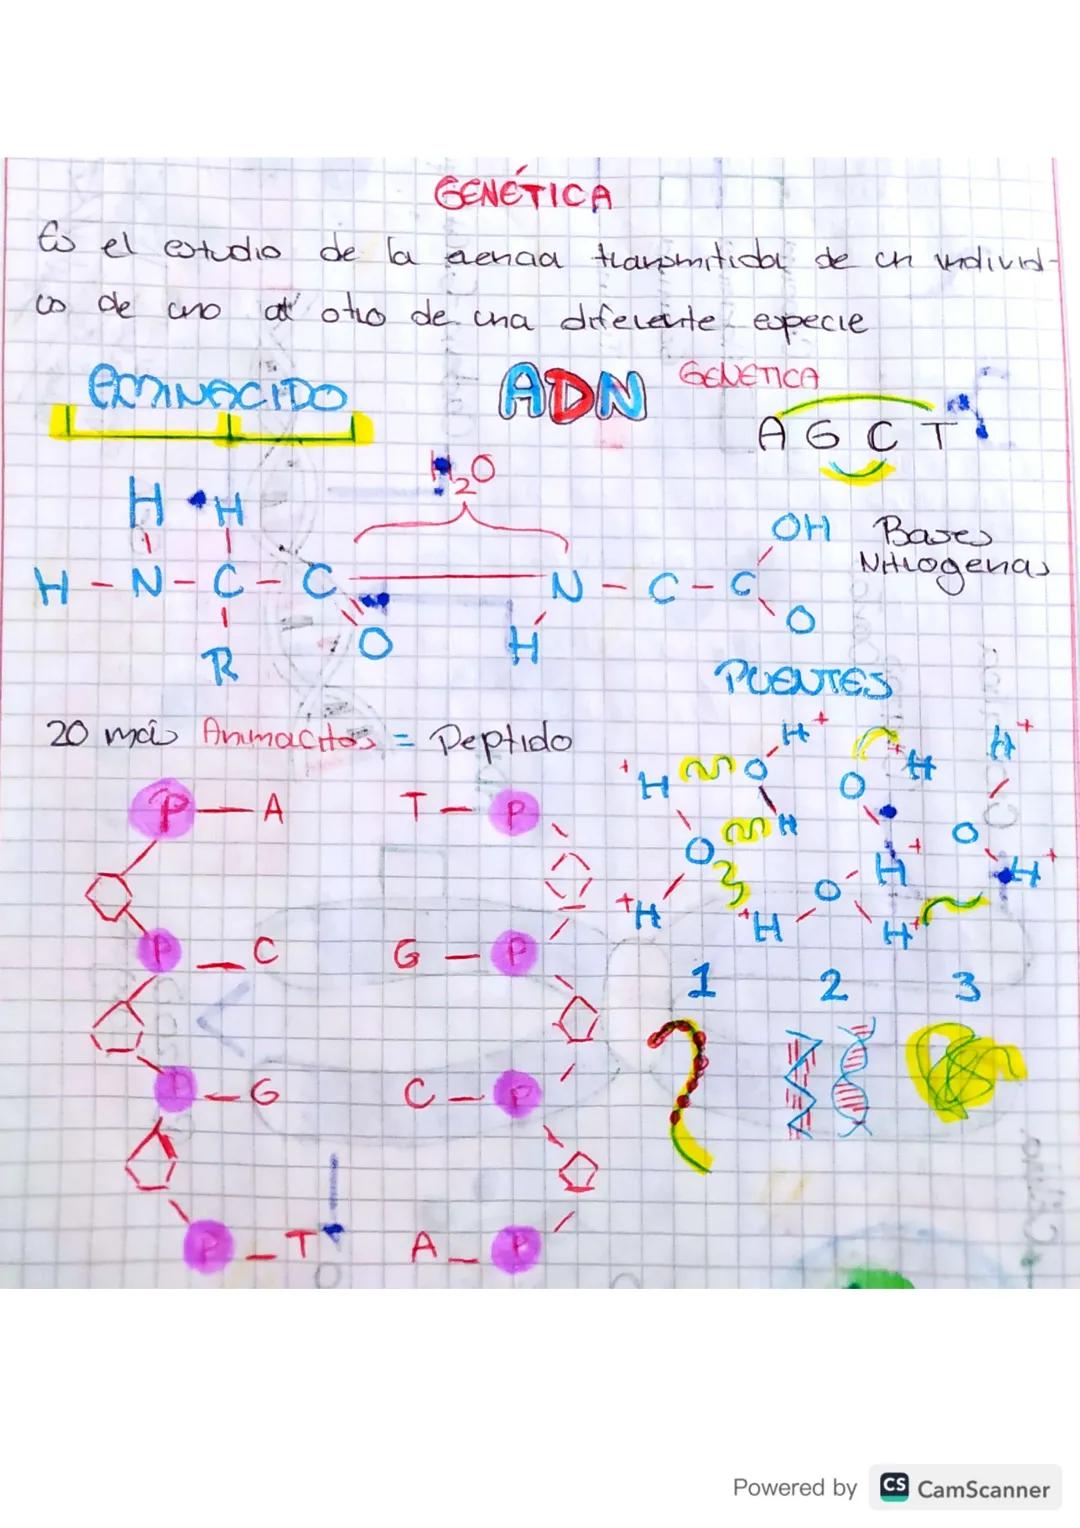 GENÉTICA
Es el estudio de la aenaa transmitida de un individ-
uo de uno al otro de una diferente especie
AMINACIDO
ADN
GENETICA
A G C T
H H
H2O
OH
Bases
Nitrogenas
H - N - C - C N - C - C
O
H
O
R
PUENTES
20 mais Animacitos = Peptido
H+ H+ H+
+H O O +H
P - A T - P
O H O
H+ H+
O
+H +H O H+
P - C G - P
1 2 3
P - G C - P
P - T A - P
Powered by CS CamScanner